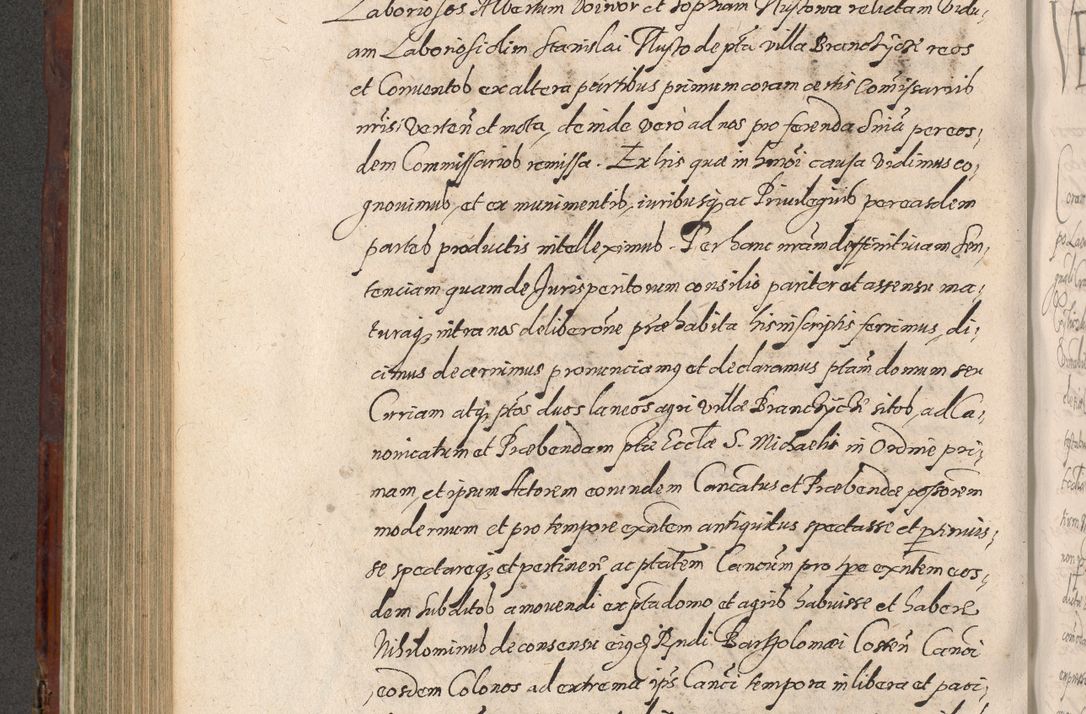 Laboriosos Albertum Voinor et Sopham Nustowa relictam Vidu,
am Laboriosi olim Stanislai Nusto de pta villa Branczÿcze reos
et Conventos ex altera partibus primum coram certis Comissariis
nris Verten et mota, deinde vero ad nos pro ferenda Snia per eos,
dem Commissarios remissa. Ex his quæ in hmoi causa vidimus co,
gnovimus, et ex munimentis, iuribusq ac Privilegiis per easdem
partes productis intelleximus. Per hanc nram deffinitivam Sen,
tenciam quam de Jurisperitorum consilio pariter et assensu ma,
turaq intra nos deliberone præhabita his inscriptis ferrimus, di,
cimus decernimus pronunciamq et declaramus ptam domum seu
Curiam atq ptos duos laneos agri Villæ Branczÿcze sitos, ad Ca,
nonicatum et Præbendam ptæ Ecclæ S. Michaelis in Ordine pri,
mam, et ipsum Actorem eorundem Cancatus et Præbendæ possorem
modernum et pro tempore exntem antiquitus spectasse et ptinuis,
se spectareq et pertinere ac ptatem Cancum pro tpe exntem eos,
dem subditos amovendi ex pta domo et agris habuisse et habere
Nihilominus de consensu eiusdem Rndi Bartholomæi Costen Canci
eosdem Colonos ad extrema ips Canci tempora in libera et paci,